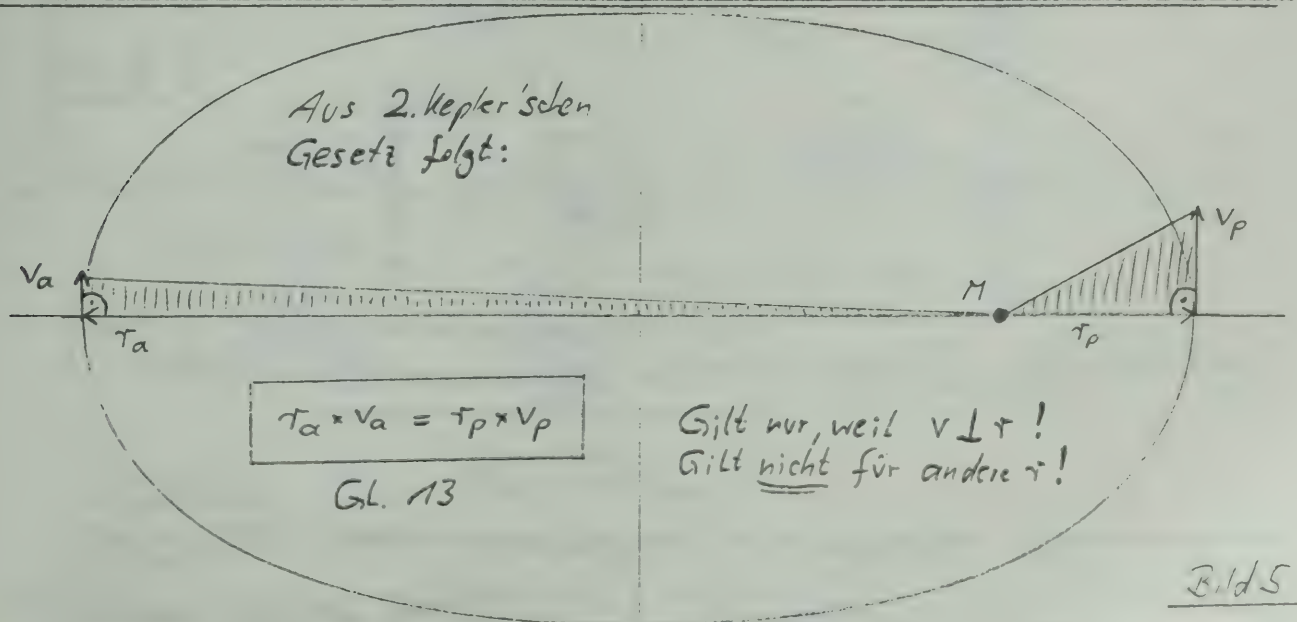 Aus 2. Kepler'schen
Gesetz folgt:
va
vp
M
ra
rp
ra * va = rp * vp
Gl. 13
Gilt nur, weil v ⊥ r !
Gilt nicht für andere r !
Bild 5